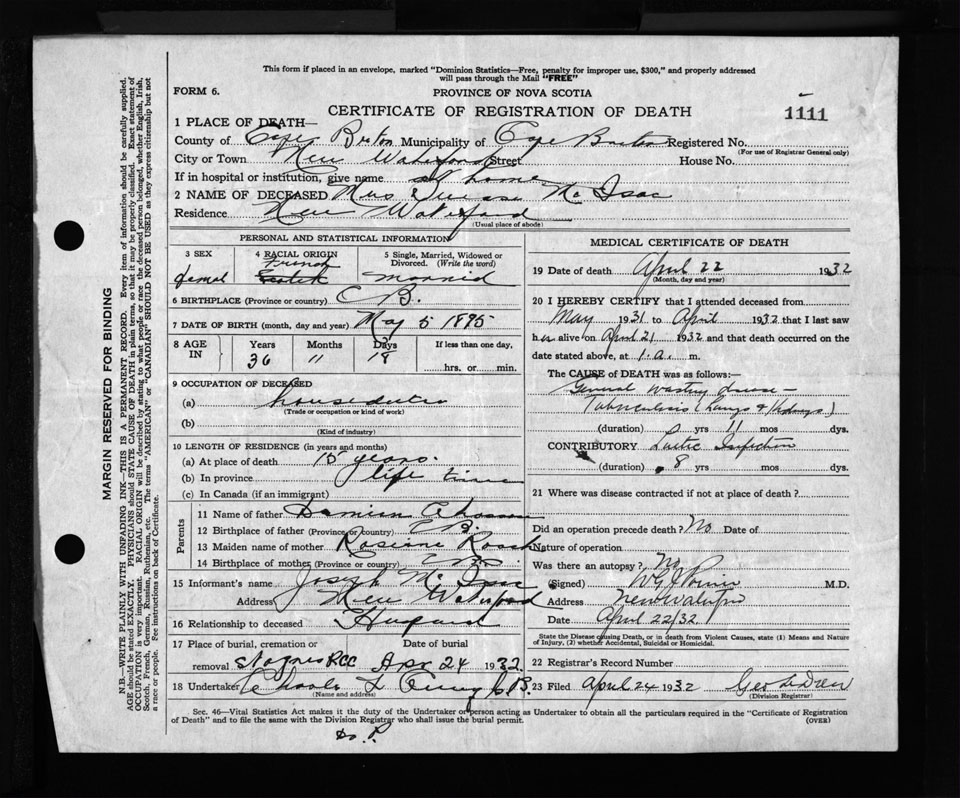 This form if placed in an envelope, marked "Dominion Statistics—Free, penalty for improper use, $300," and properly addressed
will pass through the Mail "FREE"
FORM 6.
PROVINCE OF NOVA SCOTIA
CERTIFICATE OF REGISTRATION OF DEATH
1111
1 PLACE OF DEATH—
County of Cape Breton Municipality of Cape Breton Registered No.
(For use of Registrar General only)
City or Town New Waterford Street House No.
If in hospital or institution, give name at home
2 NAME OF DECEASED Mrs Mc Isac
Residence New Waterford
(Usual place of abode)
PERSONAL AND STATISTICAL INFORMATION
3 SEX
femal
4 RACIAL ORIGIN
French
Scotch
5 Single, Married, Widowed or
Divorced. (Write the word)
Married
6 BIRTHPLACE (Province or country) C B.
7 DATE OF BIRTH (month, day and year) May 5 1895
8 AGE IN
Years Months Days If less than one day,
36 11 18 hrs. or min.
9 OCCUPATION OF DECEASED
(a)
(Trade or occupation or kind of work)
(b)
(Kind of industry)
10 LENGTH OF RESIDENCE (in years and months)
(a) At place of death 15 years.
(b) In province life time
(c) In Canada (if an immigrant)
Parents
11 Name of father
12 Birthplace of father (Province or country) C B.
13 Maiden name of mother
14 Birthplace of mother (Province or country) C B.
15 Informant's name Joseph Mc Isac
Address New Waterford
16 Relationship to deceased Husband
17 Place of burial, cremation or Date of burial
removal St Agnes RCC Apr 24 1932
18 Undertaker C.B.
(Name and address)
MEDICAL CERTIFICATE OF DEATH
19 Date of death April 22 1932
(Month, day and year)
20 I HEREBY CERTIFY that I attended deceased from
May 1931 to April 1932 that I last saw
her alive on April 21 1932 and that death occurred on the
date stated above, at 1.a. m.
The CAUSE of DEATH was as follows:—
General wasting disease —
Tuberculosis (Lungs & Kidneys)
(duration) yrs 11 mos dys.
CONTRIBUTORY Infection
(duration) 8 yrs mos dys.
21 Where was disease contracted if not at place of death?
Did an operation precede death? No Date of
Nature of operation
Was there an autopsy? No
(Signed) M.D.
Address New Waterford
Date April 22/32
State the Disease causing Death, or in death from Violent Causes, state (1) Means and Nature
of Injury, (2) whether Accidental, Suicidal or Homicidal.
22 Registrar's Record Number
23 Filed April 24 1932
(Division Registrar)
Sec. 46—Vital Statistics Act makes it the duty of the Undertaker or person acting as Undertaker to obtain all the particulars required in the "Certificate of Registration
of Death" and to file the same with the Division Registrar who shall issue the burial permit.
(OVER)
MARGIN RESERVED FOR BINDING
N.B.—WRITE PLAINLY WITH UNFADING INK—THIS IS A PERMANENT RECORD. Every item of information should be carefully supplied.
AGE should be stated EXACTLY. PHYSICIANS should STATE CAUSE OF DEATH in plain terms, so that it may be properly classified. Exact statement of
OCCUPATION is very important. RACIAL ORIGIN will be described by stating to what people or race the deceased person belonged, whether English, Irish,
Scotch, French, German, Russian, Ruthenian, etc. The terms "AMERICAN" or "CANADIAN" SHOULD NOT BE USED as they express citizenship but not
a race or people. See instructions on back of Certificate.